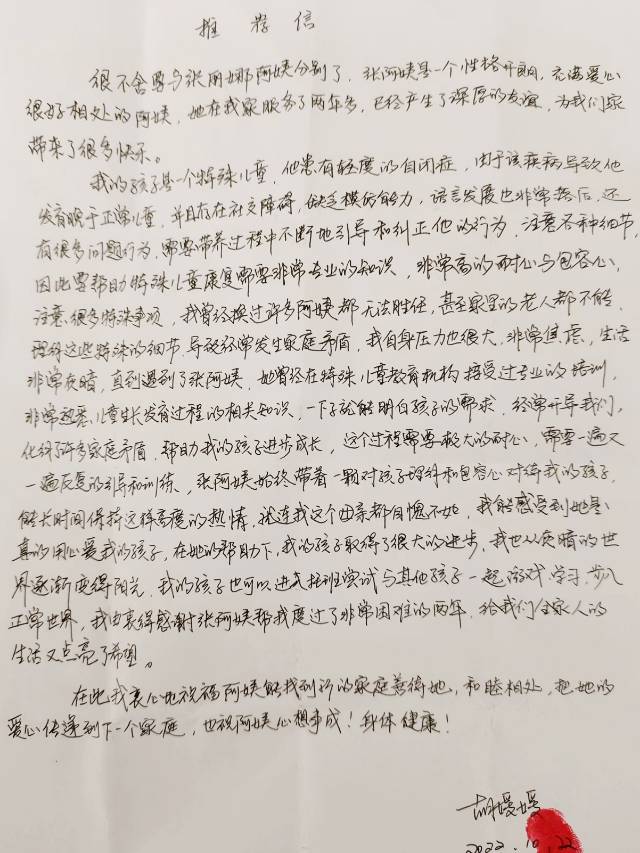 推荐信
很不舍要与张丽娜阿姨分别了，张阿姨是一个性格开朗，充满爱心
很好相处的阿姨，她在我家服务了两年多，已经产生了深厚的友谊，为我们家
带来了很多快乐。
我的孩子是一个特殊儿童，他患有轻度的自闭症，由于该疾病导致他
发育晚于正常儿童，并且存在社交障碍，缺乏模仿能力，语言发展也非常落后，还
有很多问题行为，需要带养过程中不断地引导和纠正他的行为，注意各种细节，
因此要帮助特殊儿童康复需要非常专业的知识，非常高的耐心与包容心，
注意很多特殊事项，我曾经换过许多阿姨都无法胜任，甚至家里的老人都不能
理解这些特殊的细节，导致经常发生家庭矛盾，我自身压力也很大，非常焦虑，生活
非常灰暗，直到遇到了张阿姨，她曾经在特殊儿童教育机构接受过专业的培训，
非常熟悉儿童生长发育过程的相关知识，一下子就能明白孩子的需求，经常开导我们，
化解许多家庭矛盾，帮助我的孩子进步成长，这个过程需要极大的耐心，需要一遍又
一遍反复的引导和训练，张阿姨始终带着一颗对孩子理解和包容心对待我的孩子，
能长时间保持这样高度的热情，就连我这个母亲都自愧不如，我能感受到她是
真的用心爱我的孩子，在她的帮助下，我的孩子取得了很大的进步，我也从灰暗的世
界逐渐变得阳光，我的孩子也可以进入托班尝试与其他孩子一起游戏，学习，步入
正常世界，我由衷得感谢张阿姨帮我度过了非常困难的两年，给我们全家人的
生活又点亮了希望。
在此我衷心地祝福阿姨能找到新的家庭善待她，和睦相处，把她的
爱心传递到下一个家庭，也祝阿姨心想事成！身体健康！
胡媛媛
2022.10.22